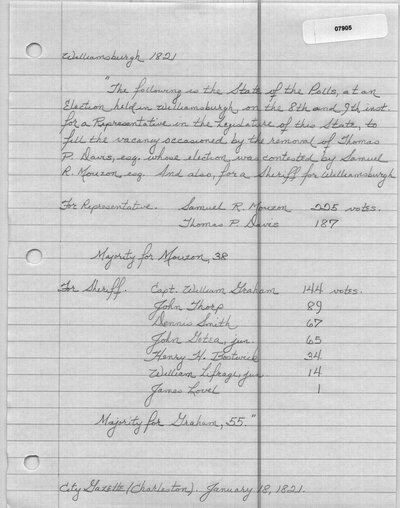 07905
Williamsburgh 1821
"The following is the State of the Polls, at an
Election held in Williamsburgh, on the 8th and 9th inst.
for a Representative in the Legislature of this State, to
fill the vacancy occasioned by the removal of Thomas
P. Davis, esq. whose election was contested by Samuel
R. Mouzon, esq. And also, for a Sheriff for Williamsburgh
For Representative. Samuel R. Mouzon 225 votes.
Thomas P. Davis 187
Majority for Mouzon, 38
For Sheriff. Capt. William Graham 144 votes.
John Thorp 89
Dennis Smith 67
John Gotea, jun. 65
Henry H. Bostwick 24
William Lifrage, jun. 14
James Lovel 1
Majority for Graham, 55."
City Gazette (Charleston). January 18, 1821.